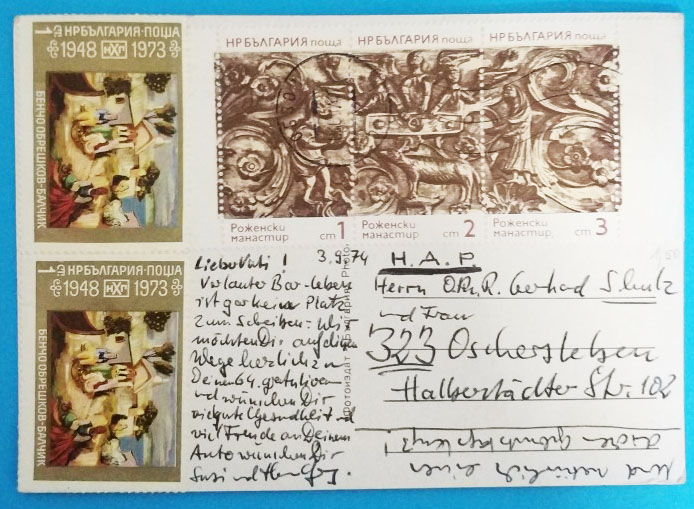 НРБЪЛГАРИЯ-ПОЩА
1 ст
1948 НХГ 1973
БЕНЧО ОБРЕШКОВ-БАЛЧИК
НРБЪЛГАРИЯ-ПОЩА
1 ст
1948 НХГ 1973
БЕНЧО ОБРЕШКОВ-БАЛЧИК
НРБЪЛГАРИЯ поща
Роженски
манастир ст 1
НРБЪЛГАРИЯ поща
Роженски
манастир ст 2
НРБЪЛГАРИЯ поща
Роженски
манастир ст 3
Lieber Vati! 3.9.74
Vor lauter
ist gar keine Platz
zum Schreiben: Wir
möchten Dir auf diesem
Wege herzlich zu
Deinem 64. gratulieren
und wünschen Dir
viel gute Gesundheit und
viel Freude an Deinem
Auto wünschen Dir
Susi und
Фотоиздат България Photo
H.A.P.
Herrn Gerhard
und Frau
323 Oschersleben
Halberstädter Str. 102
und natürlich einen